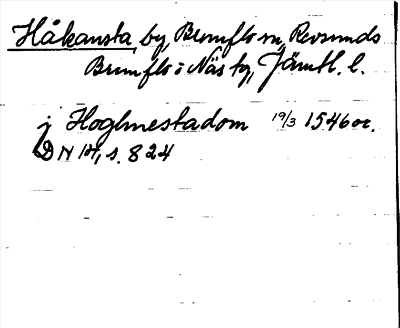 Håkansta by, Brunflo sn, Revsunds
Brunflo o Näs tg, Jämtl. l.
j Hoghnestadom 19/3 1546 or.
DN 14, s. 824